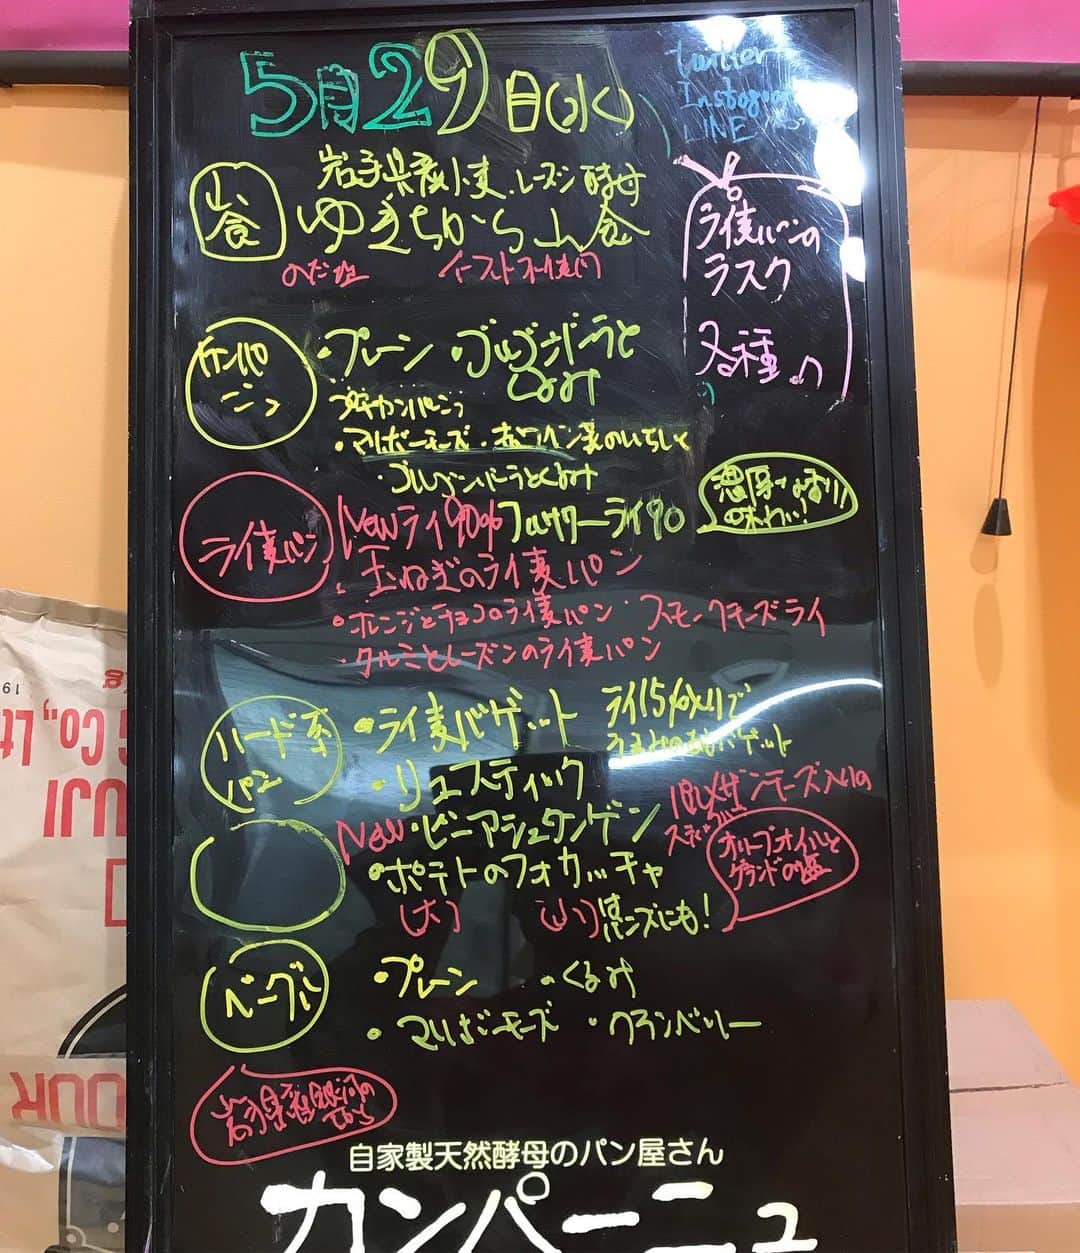 5月29日(水)
twitter
Instagram
LINE
山食
岩手県産小麦、レーズン酵母
ゆきちから山食
のだ塩 イーストフード
ライ麦パンの
ラスク
各種♪
カンパ
ーニュ
・プレーン ・ブルゴンドーラと
くるみ
プチカンパーニュ
・マリボーチーズ ・赤ワイン煮のいちじく
とくるみ
ライ麦パン
Newライ90% フルサワーライ90
濃厚な香り!
味わい!
・玉ねぎのライ麦パン
・オレンジとチョコのライ麦パン ・スモークチーズライ
・クルミとレーズンのライ麦パン
ハード系
パン
・ライ麦バゲット
ライ15%入りで
うまみのあるバゲット
・リュスティック
New・ビーニアシュタンゲン
パルメザンチーズ入りの
スティック
・ポテトのフォカッチャ
オリーブオイルと
ゲランドの塩
(大) (小)はバンズにも!
ベーグル
・プレーン ・くるみ
・マリボーチーズ ・クランベリー
岩手県産銀河の
ちから
自家製天然酵母のパン屋さん
カンパーニュ
Co., Lt
FUJI
OUR
19